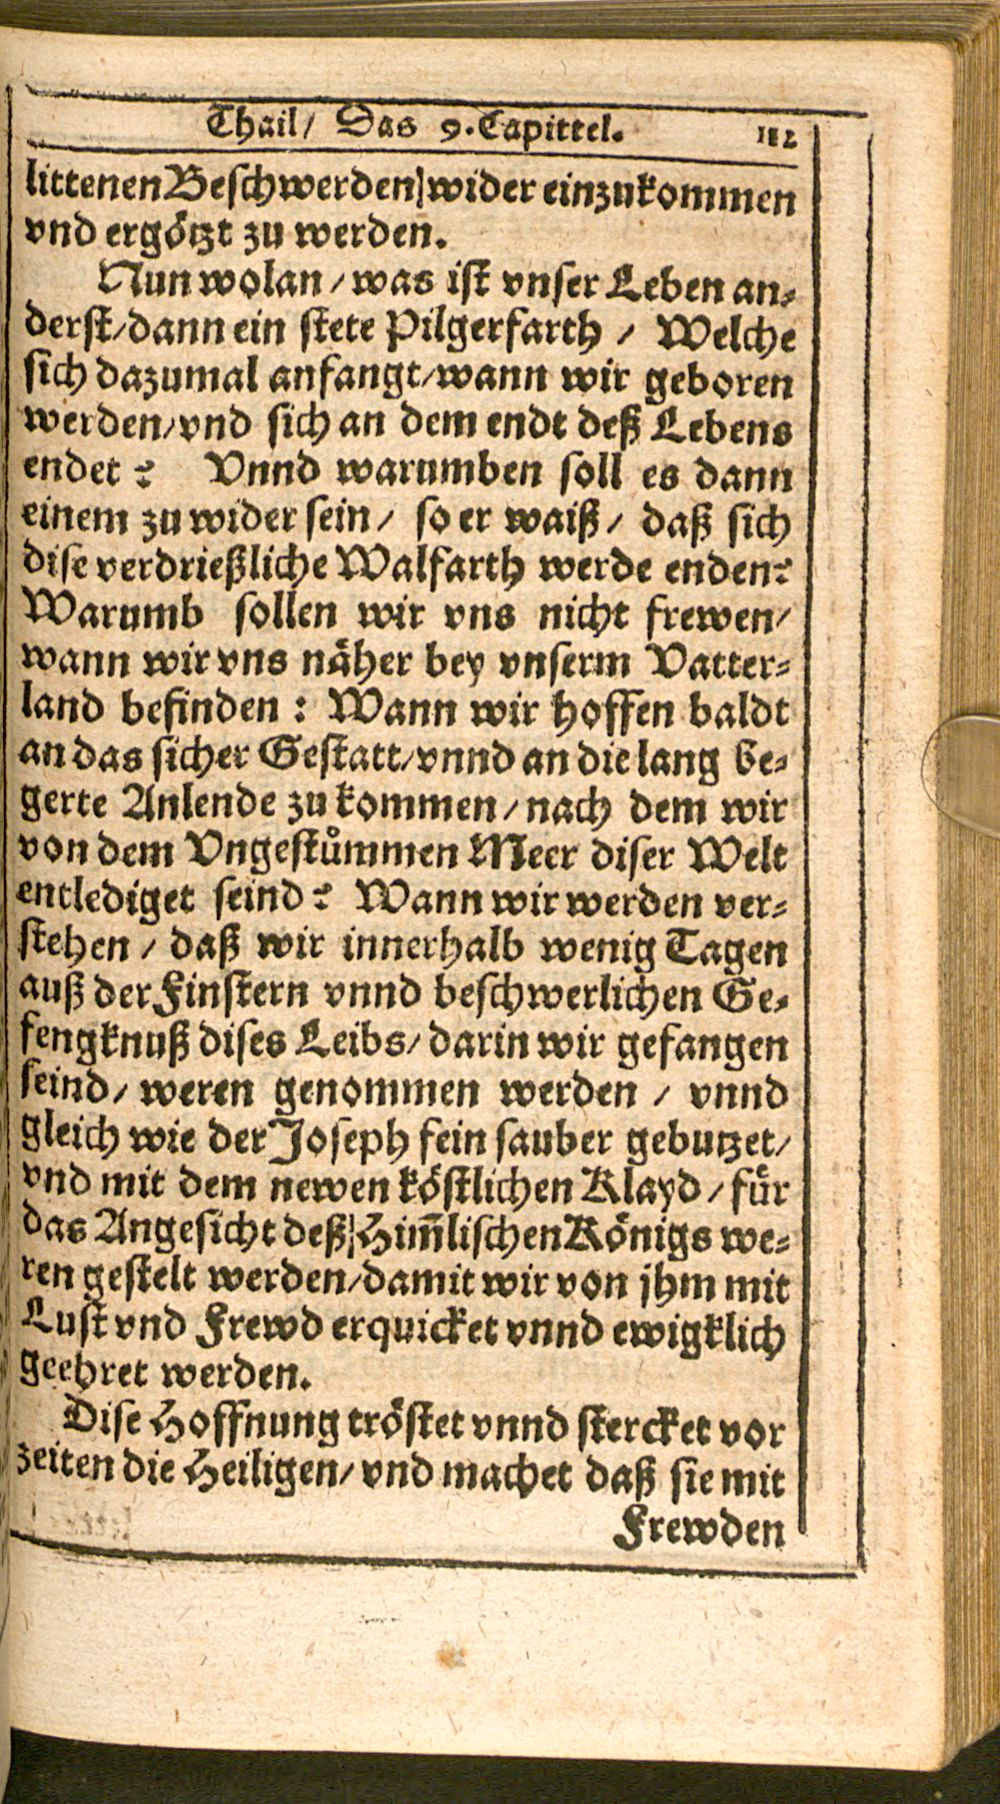 Thail/ Das 9. Capittel. 112
littenen Beschwerden/ wider einzukommen
vnd ergötzt zu werden.
Nun wolan/ was ist vnser Leben an⸗
derst/ dann ein stete Pilgerfarth/ Welche
sich dazumal anfangt/ wann wir geboren
werden/ vnd sich an dem endt deß Lebens
endet? Vnnd warumben soll es dann
einem zu wider sein/ so er waiß/ daß sich
dise verdrießliche Walfarth werde enden?
Warumb sollen wir vns nicht frewen/
wann wir vns näher bey vnserm Vatter⸗
land befinden: Wann wir hoffen baldt
an das sicher Gestatt/ vnnd an die lang be⸗
gerte Anlende zu kommen/ nach dem wir
von dem Vngestůmmen Meer diser Welt
entlediget seind? Wann wir werden ver⸗
stehen/ daß wir innerhalb wenig Tagen
auß der Finstern vnnd beschwerlichen Ge⸗
fengknuß dises Leibs/ darin wir gefangen
seind/ weren genommen werden/ vnnd
gleich wie der Joseph fein sauber gebutzet/
vnd mit dem newen köstlichen Klayd/ für
das Angesicht deß Him̃lischen Königs we⸗
ren gestelt werden/ damit wir von jhm mit
Lust vnd Frewd erquicket vnnd ewigklich
geehret werden.
Dise Hoffnung tröstet vnnd stercket vor
zeiten die Heiligen/ vnd machet daß sie mit
Frewden